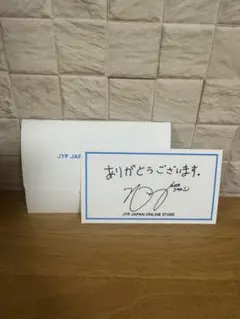 JYP JAPAN
ありがとうございます。
JYP JAPAN ONLINE STORE